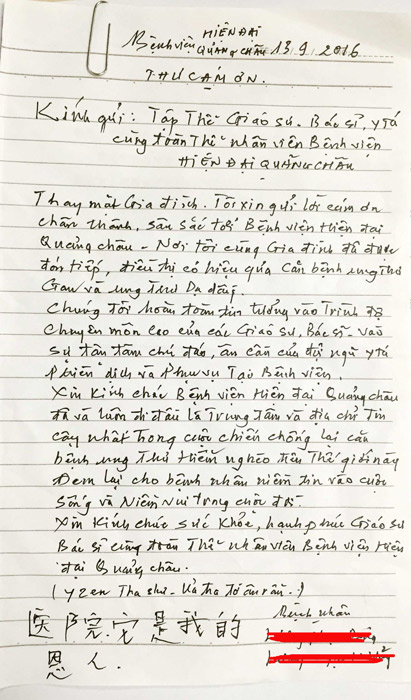 HIỆN ĐẠI
Bệnh viện QUẢNG CHÂU 13.9.2016
THƯ CẢM ƠN.
Kính gửi: Tập Thể Giáo sư. Bác sĩ, y tá
cùng toàn Thể nhân viên Bệnh viện
HIỆN ĐẠI QUẢNG CHÂU
Thay mặt Gia đình. Tôi xin gửi lời cảm ơn
chân thành, sâu sắc tới Bệnh viện Hiện đại
Quảng châu - Nơi tôi cùng Gia đình đã được
đón tiếp, điều trị có hiệu quả Căn bệnh ung thư
Gan và ung Thư Dạ dày.
Chúng tôi hoàn toàn tin tưởng vào Trình độ
chuyên môn cao của các Giáo sư, Bác sĩ vào
sự tận tâm chu đáo, ân cần của đội ngũ y tá
phiên dịch và Phục vụ Tại Bệnh viện.
Xin Kính chúc Bệnh viện Hiện đại Quảng châu
đã và luôn đi đầu là Trung tâm và địa chỉ Tin
cậy nhất Trong cuộc chiến chống lại căn
bệnh ung Thư Hiểm nghèo trên Thế giới này
Đem lại cho bệnh nhân niềm tin vào cuộc
sống và Niềm Vui trong cuộc đời.
Xin Kính chúc sức khỏe, hạnh phúc Giáo sư
Bác sĩ cùng toàn Thể nhân viên Bệnh viện Hiện
đại Quảng châu.
Bệnh nhân
医院它是我的
恩人.